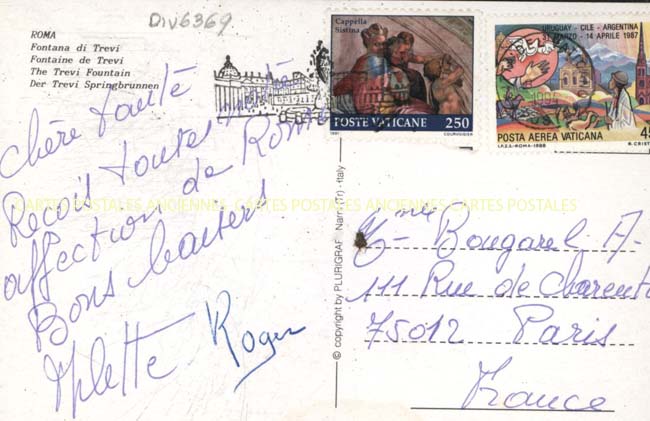 Div6369
ROMA
Fontana di Trevi
Fontaine de Trevi
The Trevi Fountain
Der Trevi Springbrunnen
Cappella
Sistina
POSTE VATICANE 250
1991
COURVOISIER
URUGUAY - CILE - ARGENTINA
31 MARZO - 14 APRILE 1987
POSTA AEREA VATICANA
I.P.Z.S. - ROMA - 1988
chère tante
Reçoit toutes
affection de Rome
Bons baisers
Roger
CARTES POSTALES ANCIENNES CARTES POSTALES ANCIENNES CARTES POSTALES
© copyright by PLURIGRAF - Narni (Tr) - Italy
Bougarel A-
111 Rue de Charent
75012 Paris
France